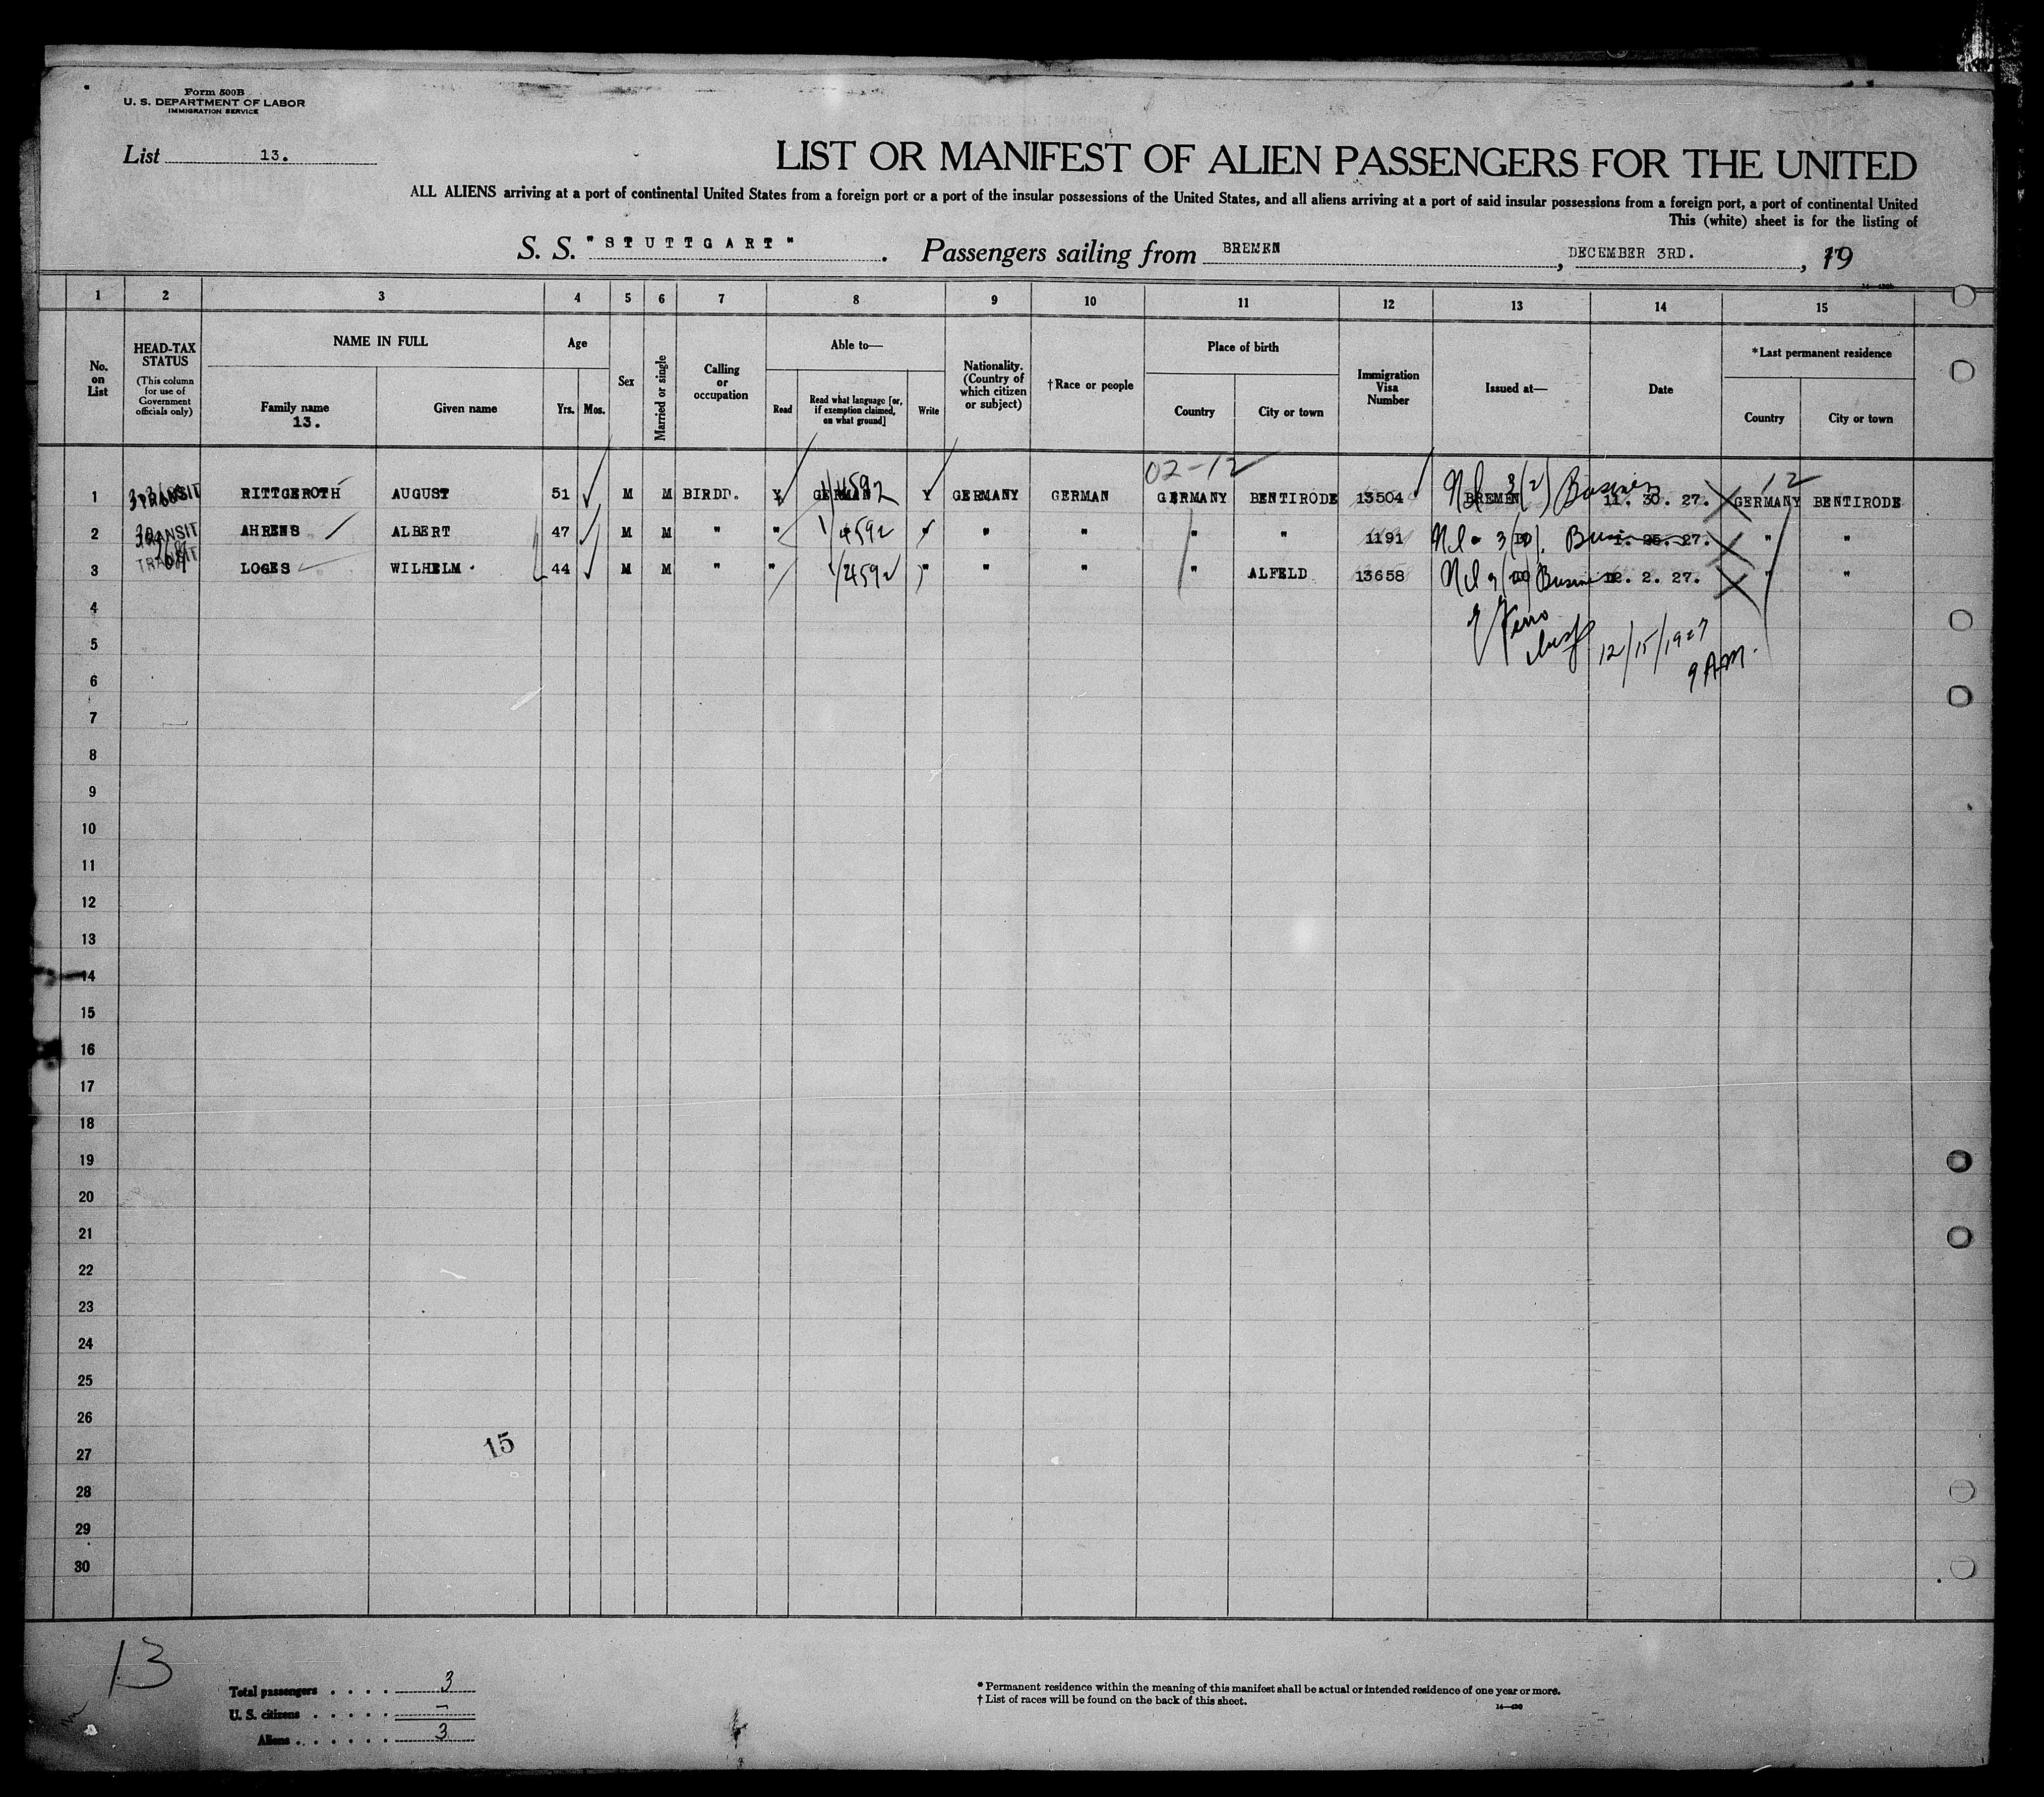 Form 500B
U. S. DEPARTMENT OF LABOR
IMMIGRATION SERVICE
List 13.
LIST OR MANIFEST OF ALIEN PASSENGERS FOR THE UNITED
ALL ALIENS arriving at a port of continental United States from a foreign port or a port of the insular possessions of the United States, and all aliens arriving at a port of said insular possessions from a foreign port, a port of continental United
This (white) sheet is for the listing of
S. S. "STUTTGART". Passengers sailing from BREMEN, DECEMBER 3RD., 19
1 2 3 4 5 6 7 8 9 10 11 12 13 14 15
No. on List
HEAD-TAX STATUS
(This column for use of Government officials only)
NAME IN FULL
Family name
13.
Given name
Age
Yrs. Mos.
Sex
Married or single
Calling or occupation
Able to—
Read
Read what language [or, if exemption claimed, on what ground]
Write
Nationality. (Country of which citizen or subject)
†Race or people
Place of birth
Country
City or town
Immigration Visa Number
Issued at—
Date
*Last permanent residence
Country
City or town
02-12
12
1 TRANSIT RITTGEROTH AUGUST 51 M M BIRDD. Y GERMAN Y GERMANY GERMAN GERMANY BENTIRODE 13504 BREMEN 3(2) Business 11. 30. 27. GERMANY BENTIRODE
2 TRANSIT AHRENS ALBERT 47 M M " " 4592 " " " " " 1191 3 25. 27. " "
3 TRANSIT LOGES WILHELM 44 M M " " 4592 " " " " ALFELD 13658 12. 2. 27. " "
12/15/1927
9 AM.
4
5
6
7
8
9
10
11
12
13
14
15
16
17
18
19
20
21
22
23
24
25
26
27
15
28
29
30
13
Total passengers . . . . 3
U. S. citizens . . . . . –
Aliens . . . . . . 3
* Permanent residence within the meaning of this manifest shall be actual or intended residence of one year or more.
† List of races will be found on the back of this sheet.